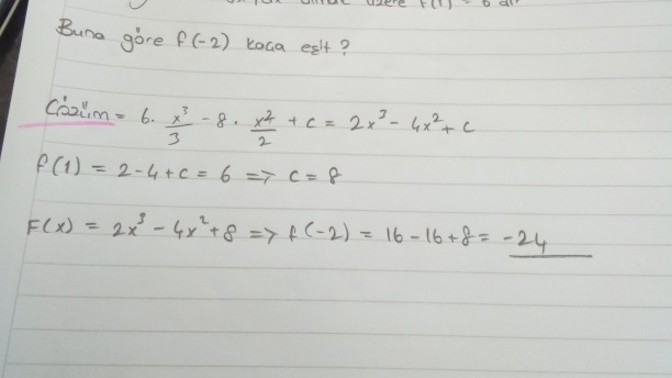 üzere f(1) = 6 dır
Buna göre f(-2) kaça eşit?
Çözüm = 6. x³/3 - 8 . x²/2 + c = 2x³ - 4x² + c
f(1) = 2-4+c = 6 => c = 8
F(x) = 2x³ - 4x² + 8 => f(-2) = 16 - 16 + 8 = -24